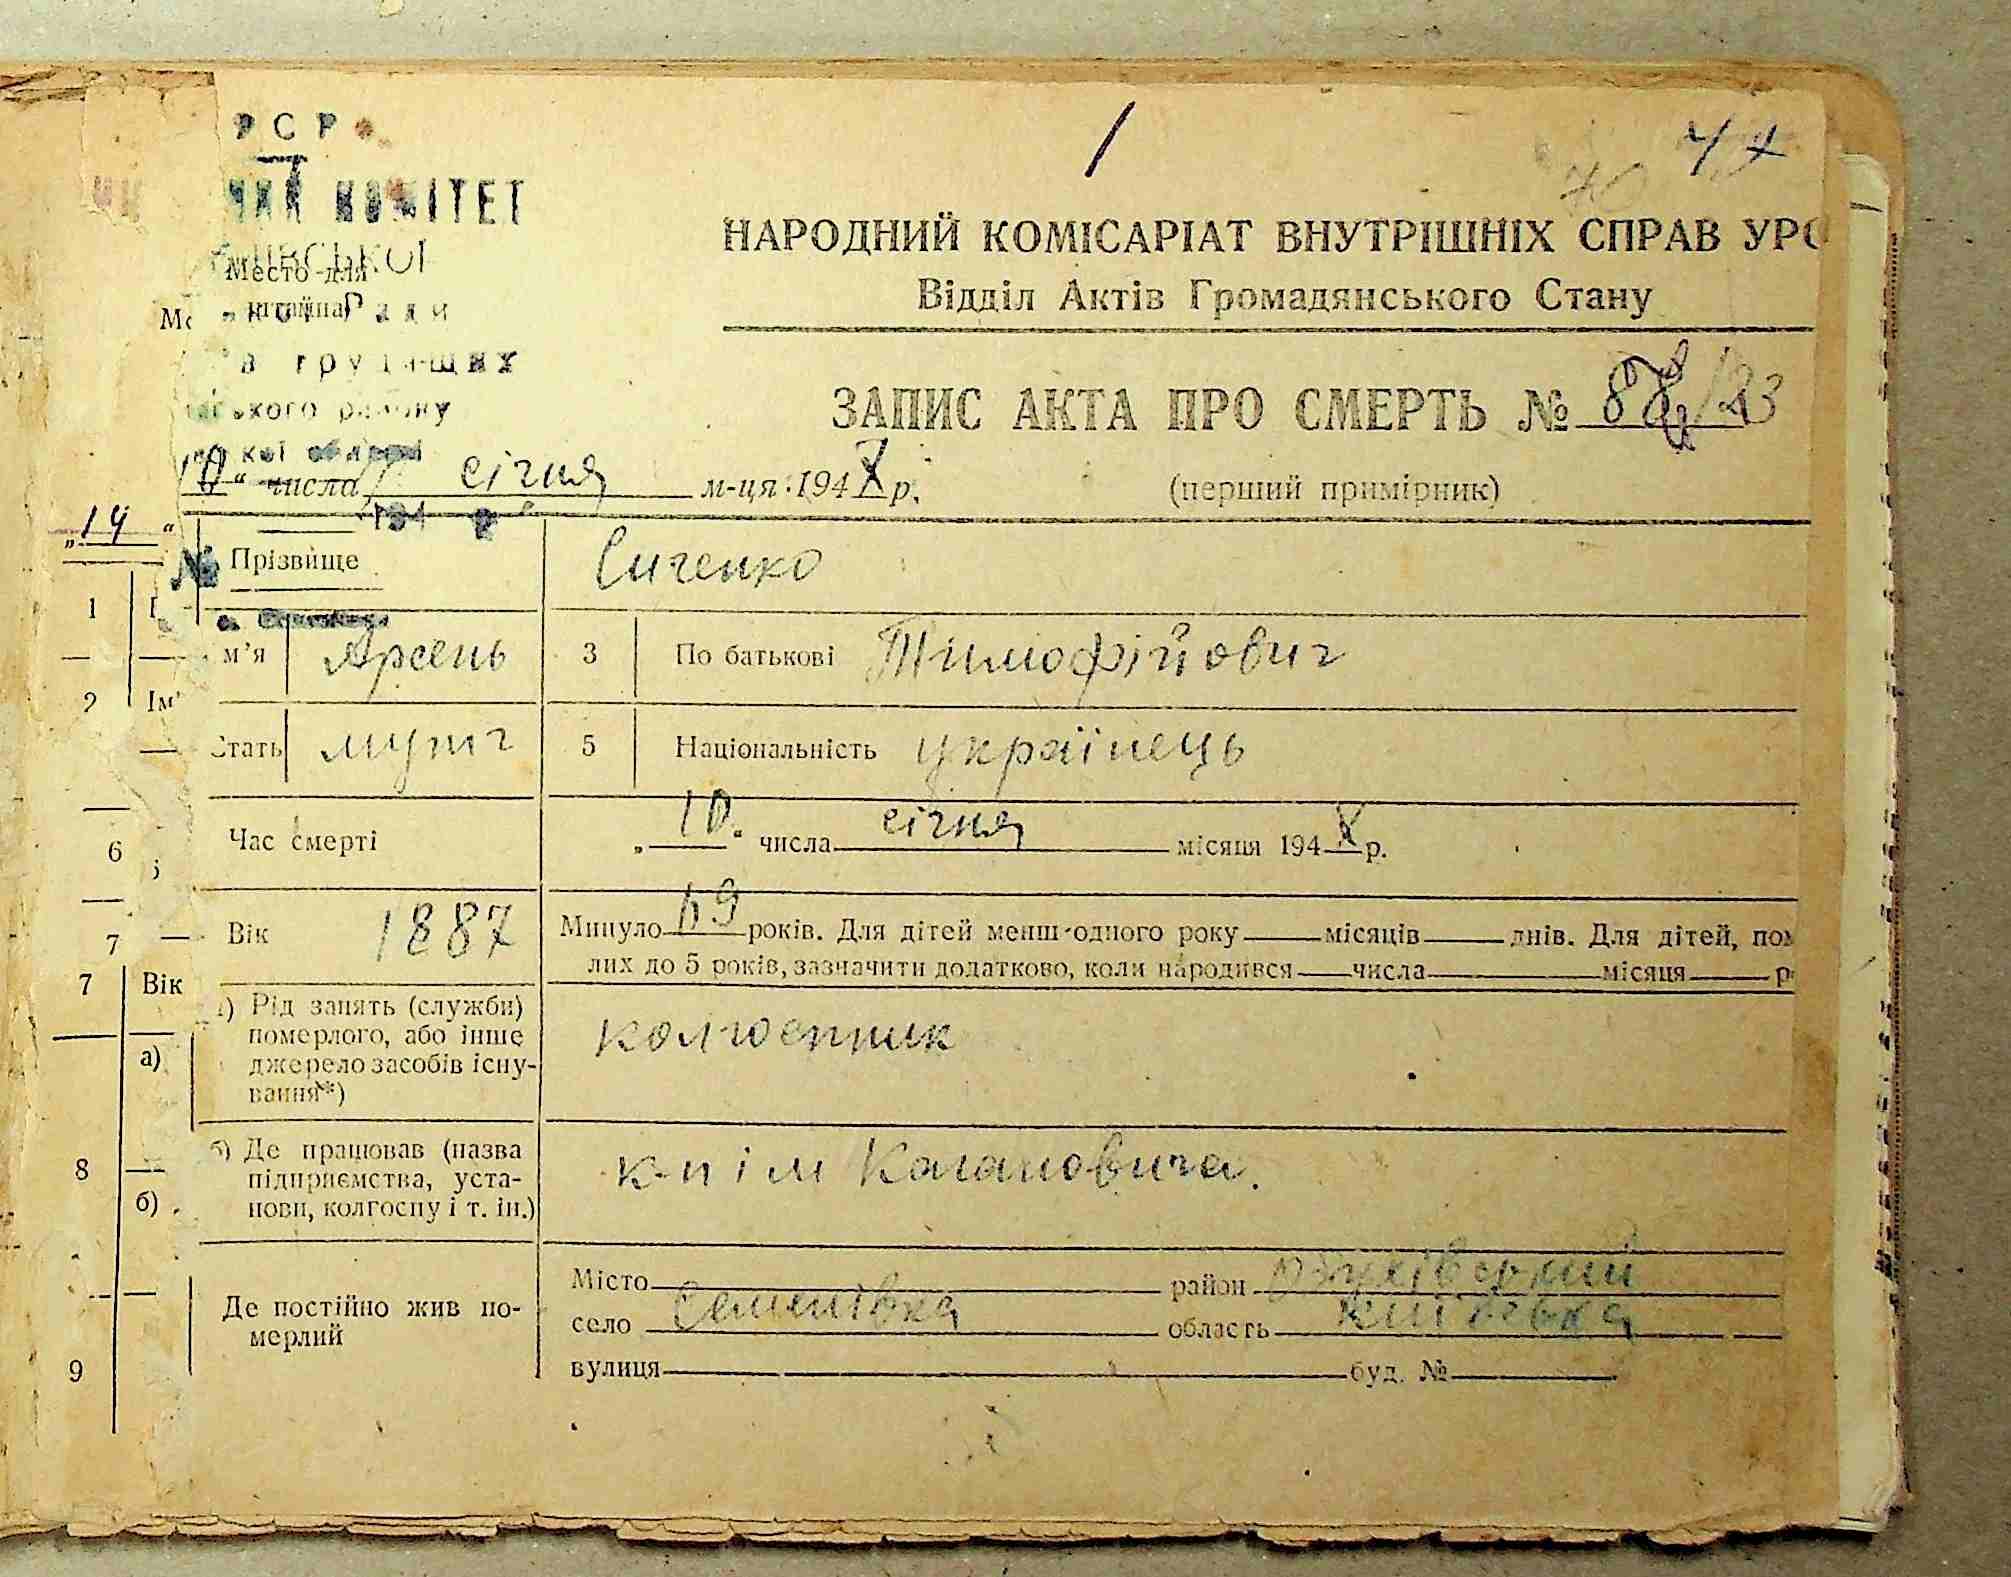 РСР
КОМІТЕТ
Место для
штампа
Ради
трудящих
ського району
кої області
1
НАРОДНИЙ КОМІСАРІАТ ВНУТРІШНІХ СПРАВ УРС
Відділ Актів Громадянського Стану
ЗАПИС АКТА ПРО СМЕРТЬ № /23
10 “ числа січня м-ця 194 р. (перший примірник)
„ 14 “
194 р
№ Прізвище Сиченко
1
м’я Арсень 3 По батькові Тимофійович
2 Ім’
Стать мужч 5 Національність українець
6 Час смерті „ 10 “ числа січня місяця 194 р.
7 Вік 1887 Минуло 69 років. Для дітей менш одного року місяців днів. Для дітей, пом
лих до 5 років, зазначити додатково, коли народився числа місяця р
7 Вік
а) Рід занять (служби) померлого, або інше джерело засобів існування*) колгоспник
8 б) Де працював (назва підприємства, установи, колгоспу і т. ін.) к-п ім Кагановича.
9 Де постійно жив померлий
Місто район Обухівський
село Семенівка область київська
вулиця буд. №